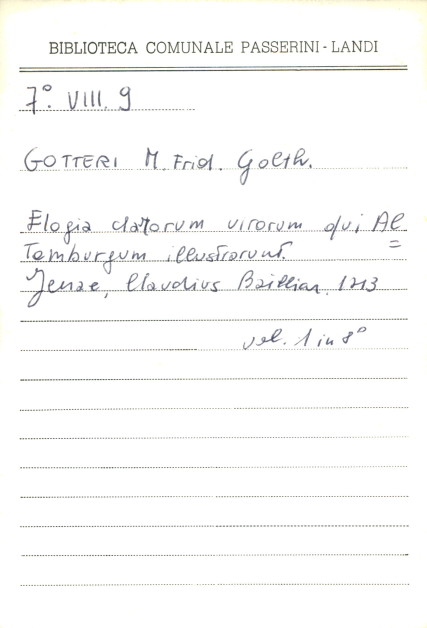 BIBLIOTECA COMUNALE PASSERINI - LANDI
7°. VIII. 9
GOTTERI M. Frid. Gotth.
Elogia clarorum virorum qui Al=
temburgum illustrarunt.
Jenae, Claudius Baillian. 1713
vol. 1 in 8°